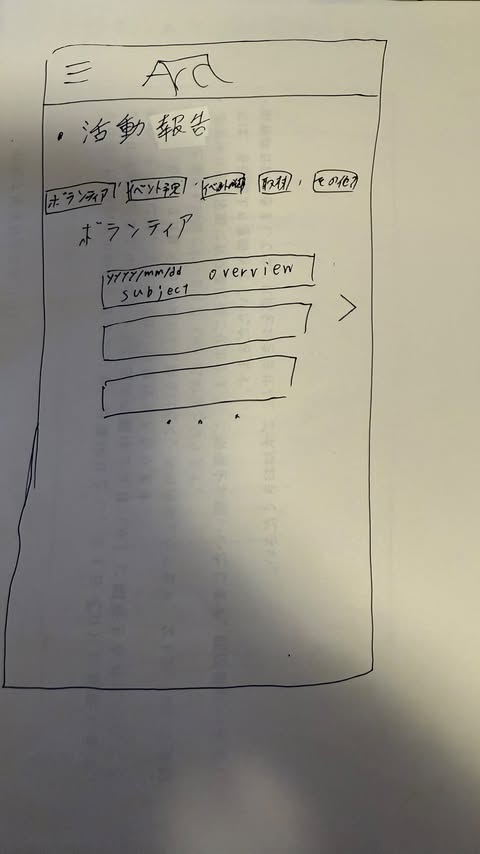 ・活動報告
ボランティア イベント予定 取材 その他
ボランティア
yyyy/mm/dd overview
subject
>